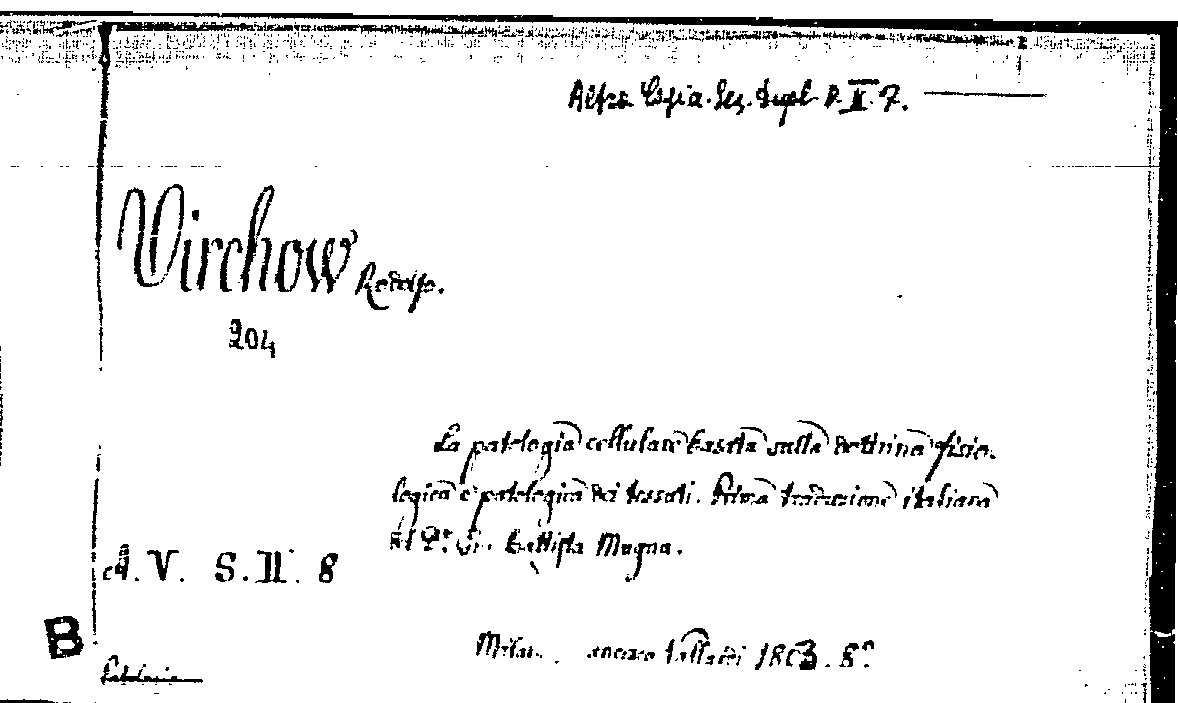 Altra Copia. Sez. Dupl. P. II. 7.
Virchow Rodolfo.
204
La patologia cellulare basata sulla dottrina fisio-
logica e patologica dei tessuti. Prima traduzione italiana
del D.r Gio. Battista Mugna.
A. V. S. II. 8
Milano Vallardi 1863. 8º
B
Patologia